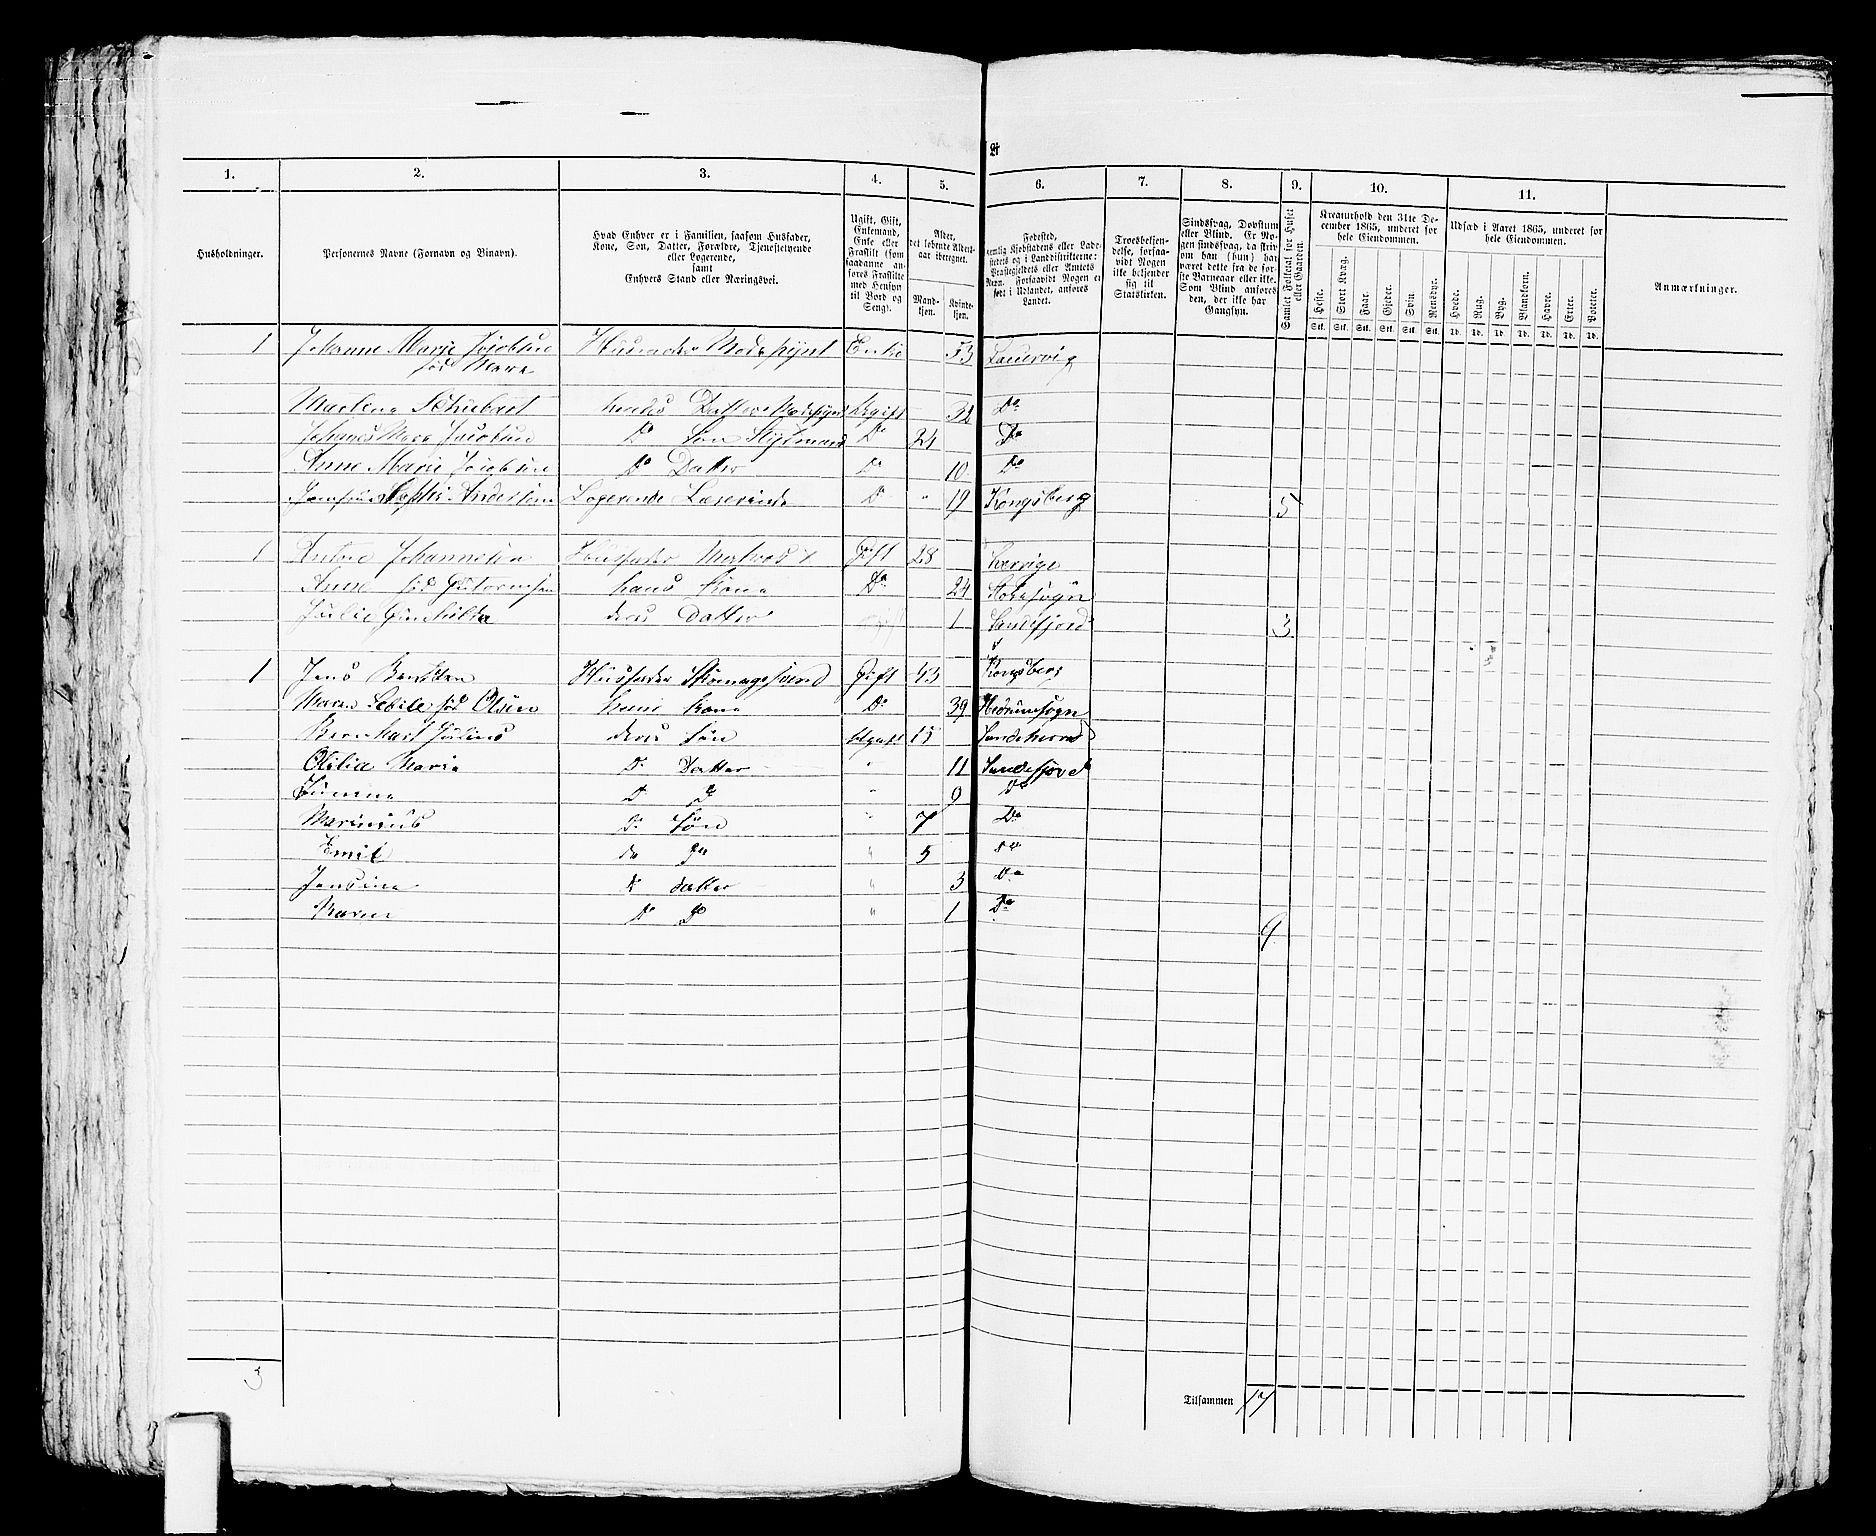 1. 2. 3. 4. 5. 6. 7. 8. 9. 10. 11.
Husholdninger.
Personernes Navne (Fornavn og Binavn).
Hvad Enhver er i Familien, saasom Husfader,
Kone, Søn, Datter, Forældre, Tjenestetyende
eller Logerende,
samt
Enhvers Stand eller Næringsvei.
Ugift, Gift,
Enkemand,
Enke eller
Fraskilt (som
saadanne an-
føres Fraskilte
med Hensyn
til Bord og
Seng).
Alder,
det løbende Alders-
aar iberegnet.
Mand-
kjøn.
Kvinde-
kjøn.
Fødested,
nemlig Kjøbstadens eller Lade-
stedets og i Landdistrikterne:
Præstegjeldets eller Amtets
Navn. Forsaavidt Nogen er
født i Udlandet, anføres
Landet.
Troesbekjen-
delse, forsaa-
vidt Nogen
ikke bekjender
sig til
Statskirken.
Sindssvag, Døvstum
eller Blind. Er No-
gen sindssvag, da skriv
om han (hun) har
været dette fra de før-
ste Barneaar eller ikke.
Som Blind anføres
den, der ikke har
Gangsyn.
Samlet Folketal for Huset
eller Gaarden.
Kreaturhold den 31te De-
cember 1865, underet for
hele Eiendommen.
Heste. Stort Kvæg. Faar. Gjeder. Svin. Rensdyr.
Stk. Stk. Stk. Stk. Stk. Stk.
Udsæd i Aaret 1865, underet for
hele Eiendommen.
Hvede. Rug. Byg. Blandkorn. Havre. Erter. Poteter.
Td. Td. Td. Td. Td. Td. Td.
Anmærkninger.
1 Johanne Marie Jacobsen Enke 53 Laurvig
fød
Schubart hendes Datter Ugift 32 Do
Jacobsen Do Søn Styrmand Do 24 Do
Anne Marie Jacobsen Do Datter Do 10 Do
Sophie Andersen Logerende Læserinde Do " 19 Kongsberg 5
1 Johannesen Husfader Matros Gift 28 Sverige
Anne fød hans Kone Do 24
Julie deres Datter 1 Sandefjord 3
1 Jens Husfader Skomagersvend Gift 43 Kongsberg
Maren fød Olsen hans Kone Do 39
Bernhart Julius deres Søn Ugift 15
Otilia Maria Do Datter " 11 Sandefjord
Do Do " 9 Do
Marinius Do Søn " 7 Do
Emil do Do " 5 Do
Jensine D datter " 3 Do
Karen Do Do " 1 Do
9
3
Tilsammen 17